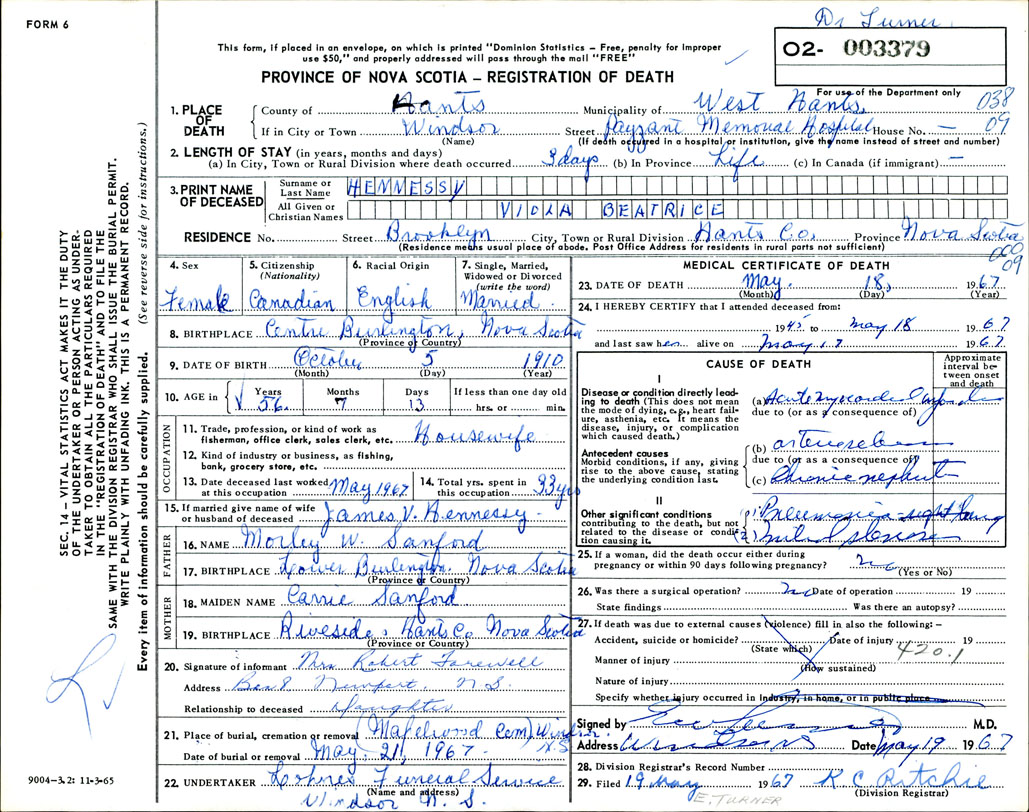 FORM 6
Dr Turner
This form, if placed in an envelope, on which is printed "Dominion Statistics – Free, penalty for improper
use $50," and properly addressed will pass through the mail "FREE"
02- 003379
PROVINCE OF NOVA SCOTIA – REGISTRATION OF DEATH
For use of the Department only
1. PLACE OF DEATH County of Hants Municipality of West Hants 038
If in City or Town Windsor Street Payzant Memorial Hospital House No. – 09
(Name) (If death occurred in a hospital or institution, give the name instead of street and number)
2. LENGTH OF STAY (in years, months and days)
(a) In City, Town or Rural Division where death occurred 3 days (b) In Province Life (c) In Canada (if immigrant) –
3. PRINT NAME OF DECEASED Surname or Last Name HENNESSY
All Given or Christian Names VIOLA BEATRICE
RESIDENCE No. Street Brooklyn City, Town or Rural Division Hants Co. Province Nova Scotia
(Residence means usual place of abode. Post Office Address for residents in rural parts not sufficient)
000
09
4. Sex Female
5. Citizenship (Nationality) Canadian
6. Racial Origin English
7. Single, Married, Widowed or Divorced (write the word) Married
8. BIRTHPLACE Centre Burlington, Nova Scotia
(Province or Country)
9. DATE OF BIRTH October 5 1910
(Month) (Day) (Year)
10. AGE in Years 56 Months 7 Days 13 If less than one day old
hrs. or min.
OCCUPATION
11. Trade, profession, or kind of work as fisherman, office clerk, sales clerk, etc. Housewife
12. Kind of industry or business, as fishing, bank, grocery store, etc.
13. Date deceased last worked at this occupation May 1967
14. Total yrs. spent in this occupation 33 yrs
15. If married give name of wife or husband of deceased James V. Hennessy
FATHER
16. NAME Morley W. Sanford
17. BIRTHPLACE Lower Burlington Nova Scotia
(Province or Country)
MOTHER
18. MAIDEN NAME Carrie Sanford
19. BIRTHPLACE Riveside, Hants Co Nova Scotia
(Province or Country)
20. Signature of informant Mrs Robert Farewell
Address Box 8 Newport. N.S.
Relationship to deceased Daughter
21. Place of burial, cremation or removal (Maplewood Cem) Windsor N.S.
Date of burial or removal May 21, 1967
22. UNDERTAKER Lohnes Funeral Service
(Name and address)
Windsor N.S.
MEDICAL CERTIFICATE OF DEATH
23. DATE OF DEATH May 18, 1967
(Month) (Day) (Year)
24. I HEREBY CERTIFY that I attended deceased from:
1945 to May 18 1967
and last saw her alive on May 17 1967
CAUSE OF DEATH
Approximate interval between onset and death
I
Disease or condition directly leading to death (This does not mean the mode of dying, e.g., heart failure, asthenia, etc. It means the disease, injury, or complication which caused death.)
(a) Acute myocardial
due to (or as a consequence of)
(b)
Antecedent causes
Morbid conditions, if any, giving rise to the above cause, stating the underlying condition last.
due to (or as a consequence of)
(c) Chronic nephritis
II
Other significant conditions
contributing to the death, but not related to the disease or condition causing it.
(1) Pneumonia - right lung
(2) Mitral stenosis
25. If a woman, did the death occur either during pregnancy or within 90 days following pregnancy? no
(Yes or No)
26. Was there a surgical operation? no Date of operation 19
State findings Was there an autopsy?
27. If death was due to external causes (violence) fill in also the following: –
Accident, suicide or homicide? Date of injury 19
(State which)
420.1
Manner of injury
(How sustained)
Nature of injury
Specify whether injury occurred in industry, in home, or in public place
Signed by M.D.
Address Windsor NS Date May 19 1967
28. Division Registrar's Record Number
29. Filed 19 May 1967 R C Ritchie
(Division Registrar)
E. TURNER
SEC. 14 – VITAL STATISTICS ACT MAKES IT THE DUTY
OF THE UNDERTAKER OR PERSON ACTING AS UNDER-
TAKER TO OBTAIN ALL THE PARTICULARS REQUIRED
IN THE "REGISTRATION OF DEATH" AND TO FILE THE
SAME WITH THE DIVISION REGISTRAR WHO SHALL ISSUE THE BURIAL PERMIT.
WRITE PLAINLY WITH UNFADING INK. THIS IS A PERMANENT RECORD.
Every item of information should be carefully supplied. (See reverse side for instructions.)
9004-3.2: 11-3-65